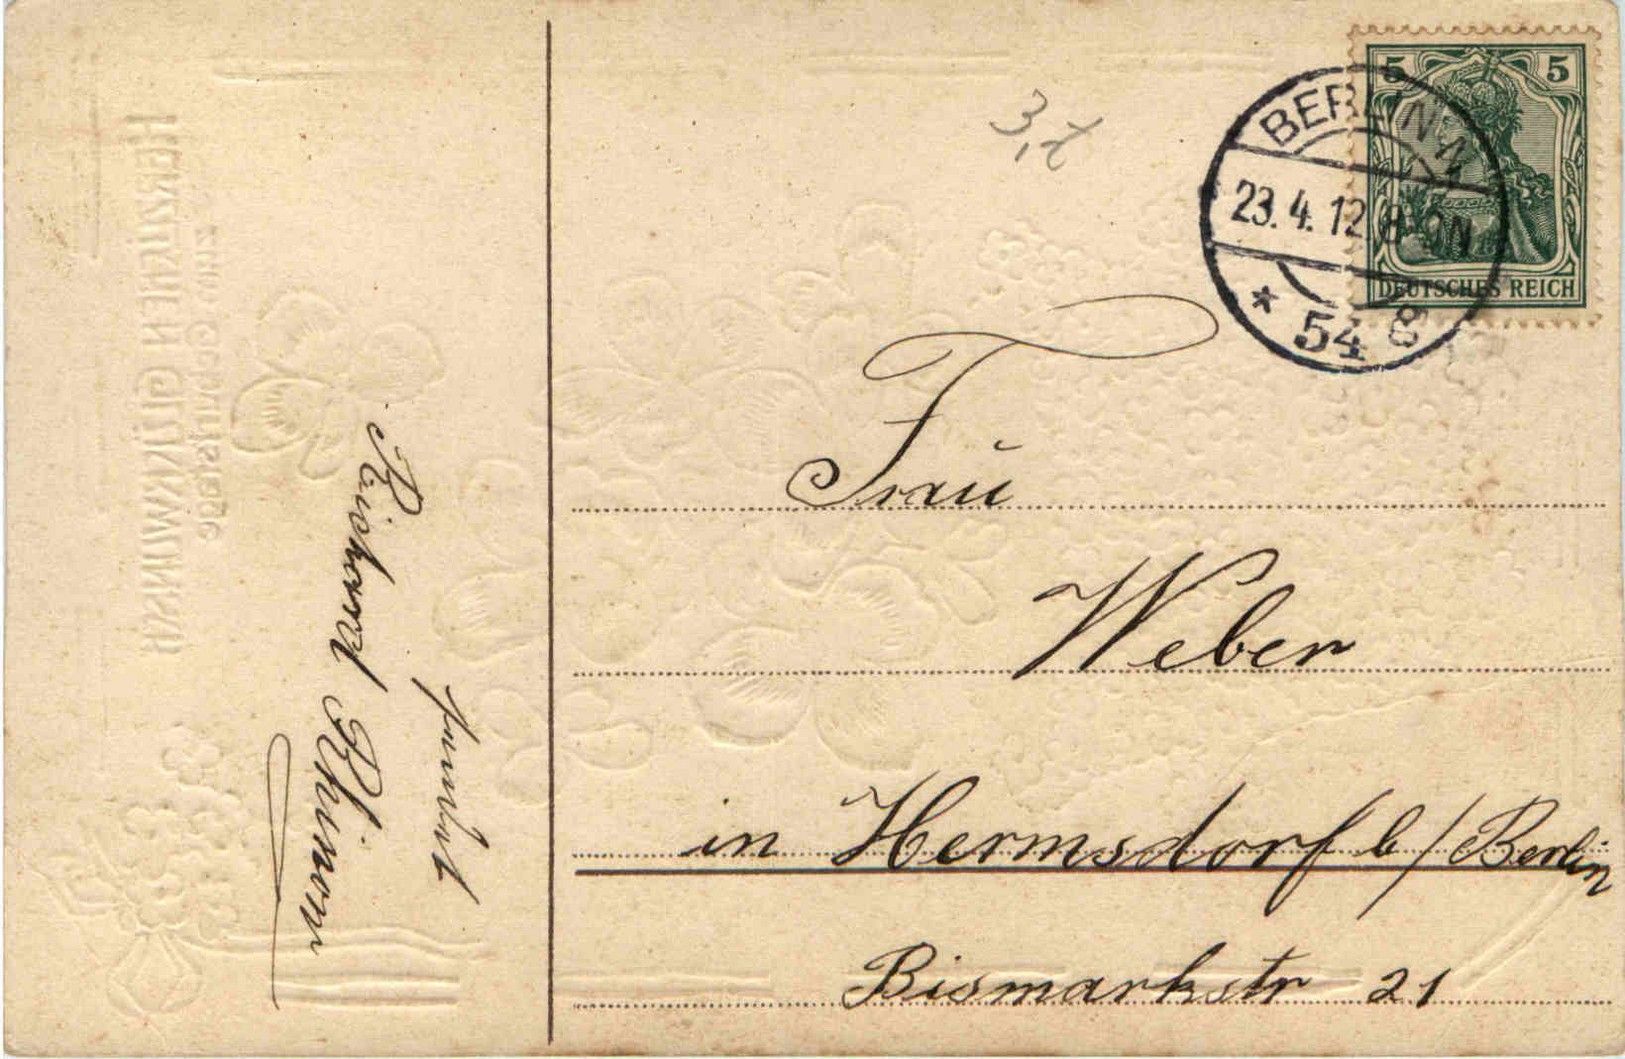 3,7
5 5
DEUTSCHES REICH
BERLIN N.
23.4.12. 8-9N
* 54 g
Frau
Weber
in Hermsdorf b/Berlin
Bismarkstr 21
Richard
HERZLICHEN GLÜCKWUNSCH
zum Geburtstage